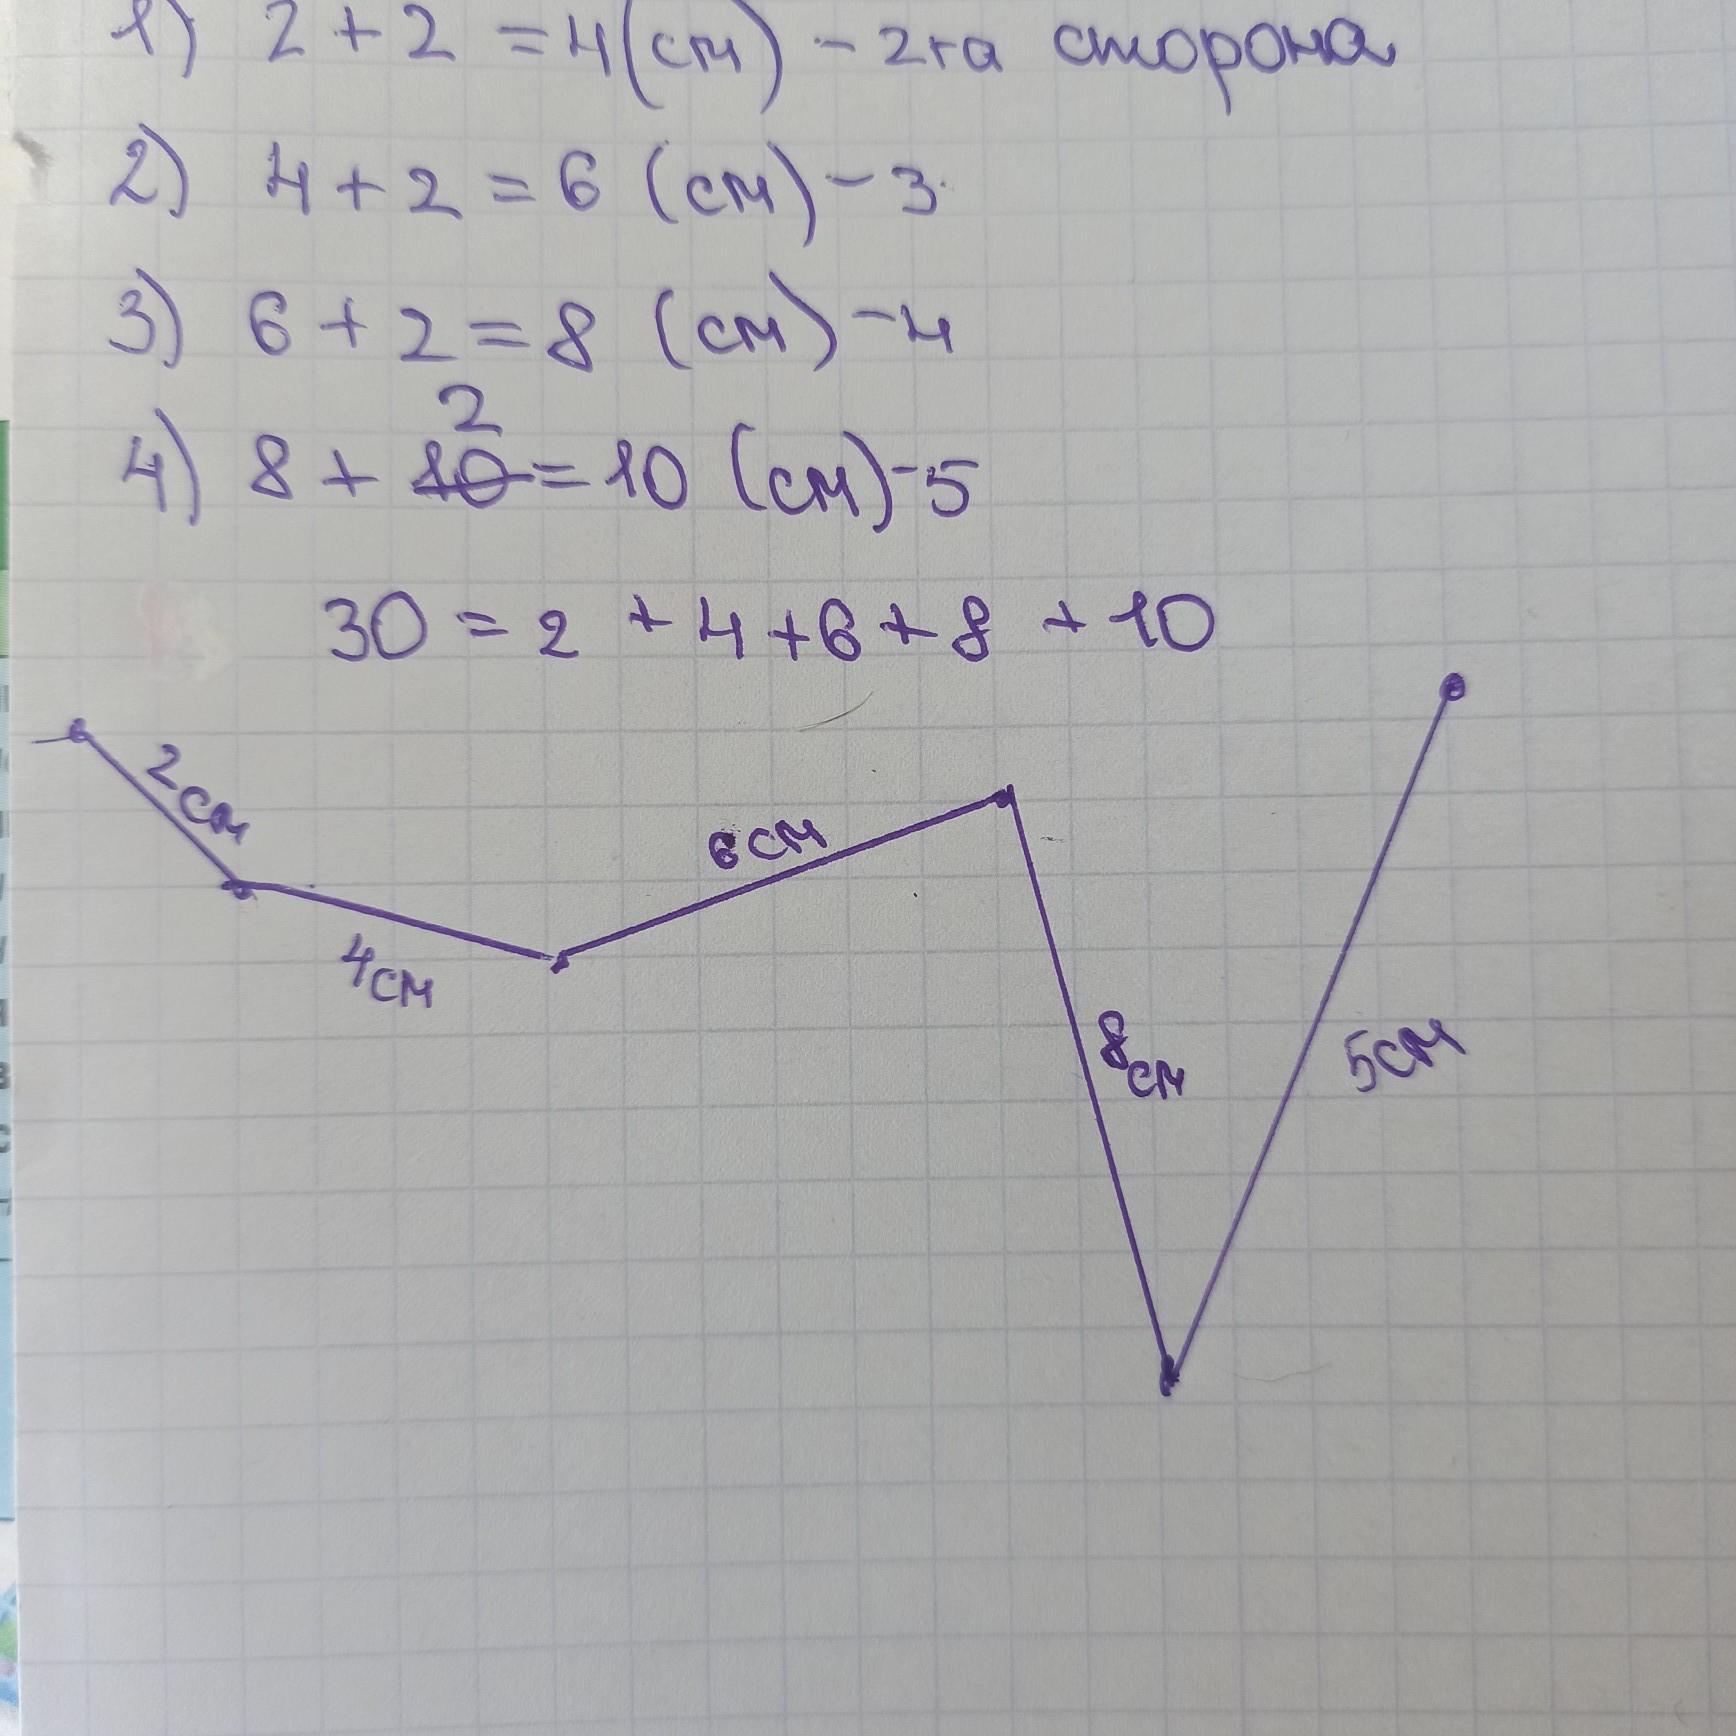 1) 2 + 2 = 4 (см) - 2га сторона
2) 4 + 2 = 6 (см) - 3
3) 6 + 2 = 8 (см) - 4
2
4) 8 + 10 = 10 (см) - 5
30 = 2 + 4 + 6 + 8 + 10
2см
6см
4см
8см
5см